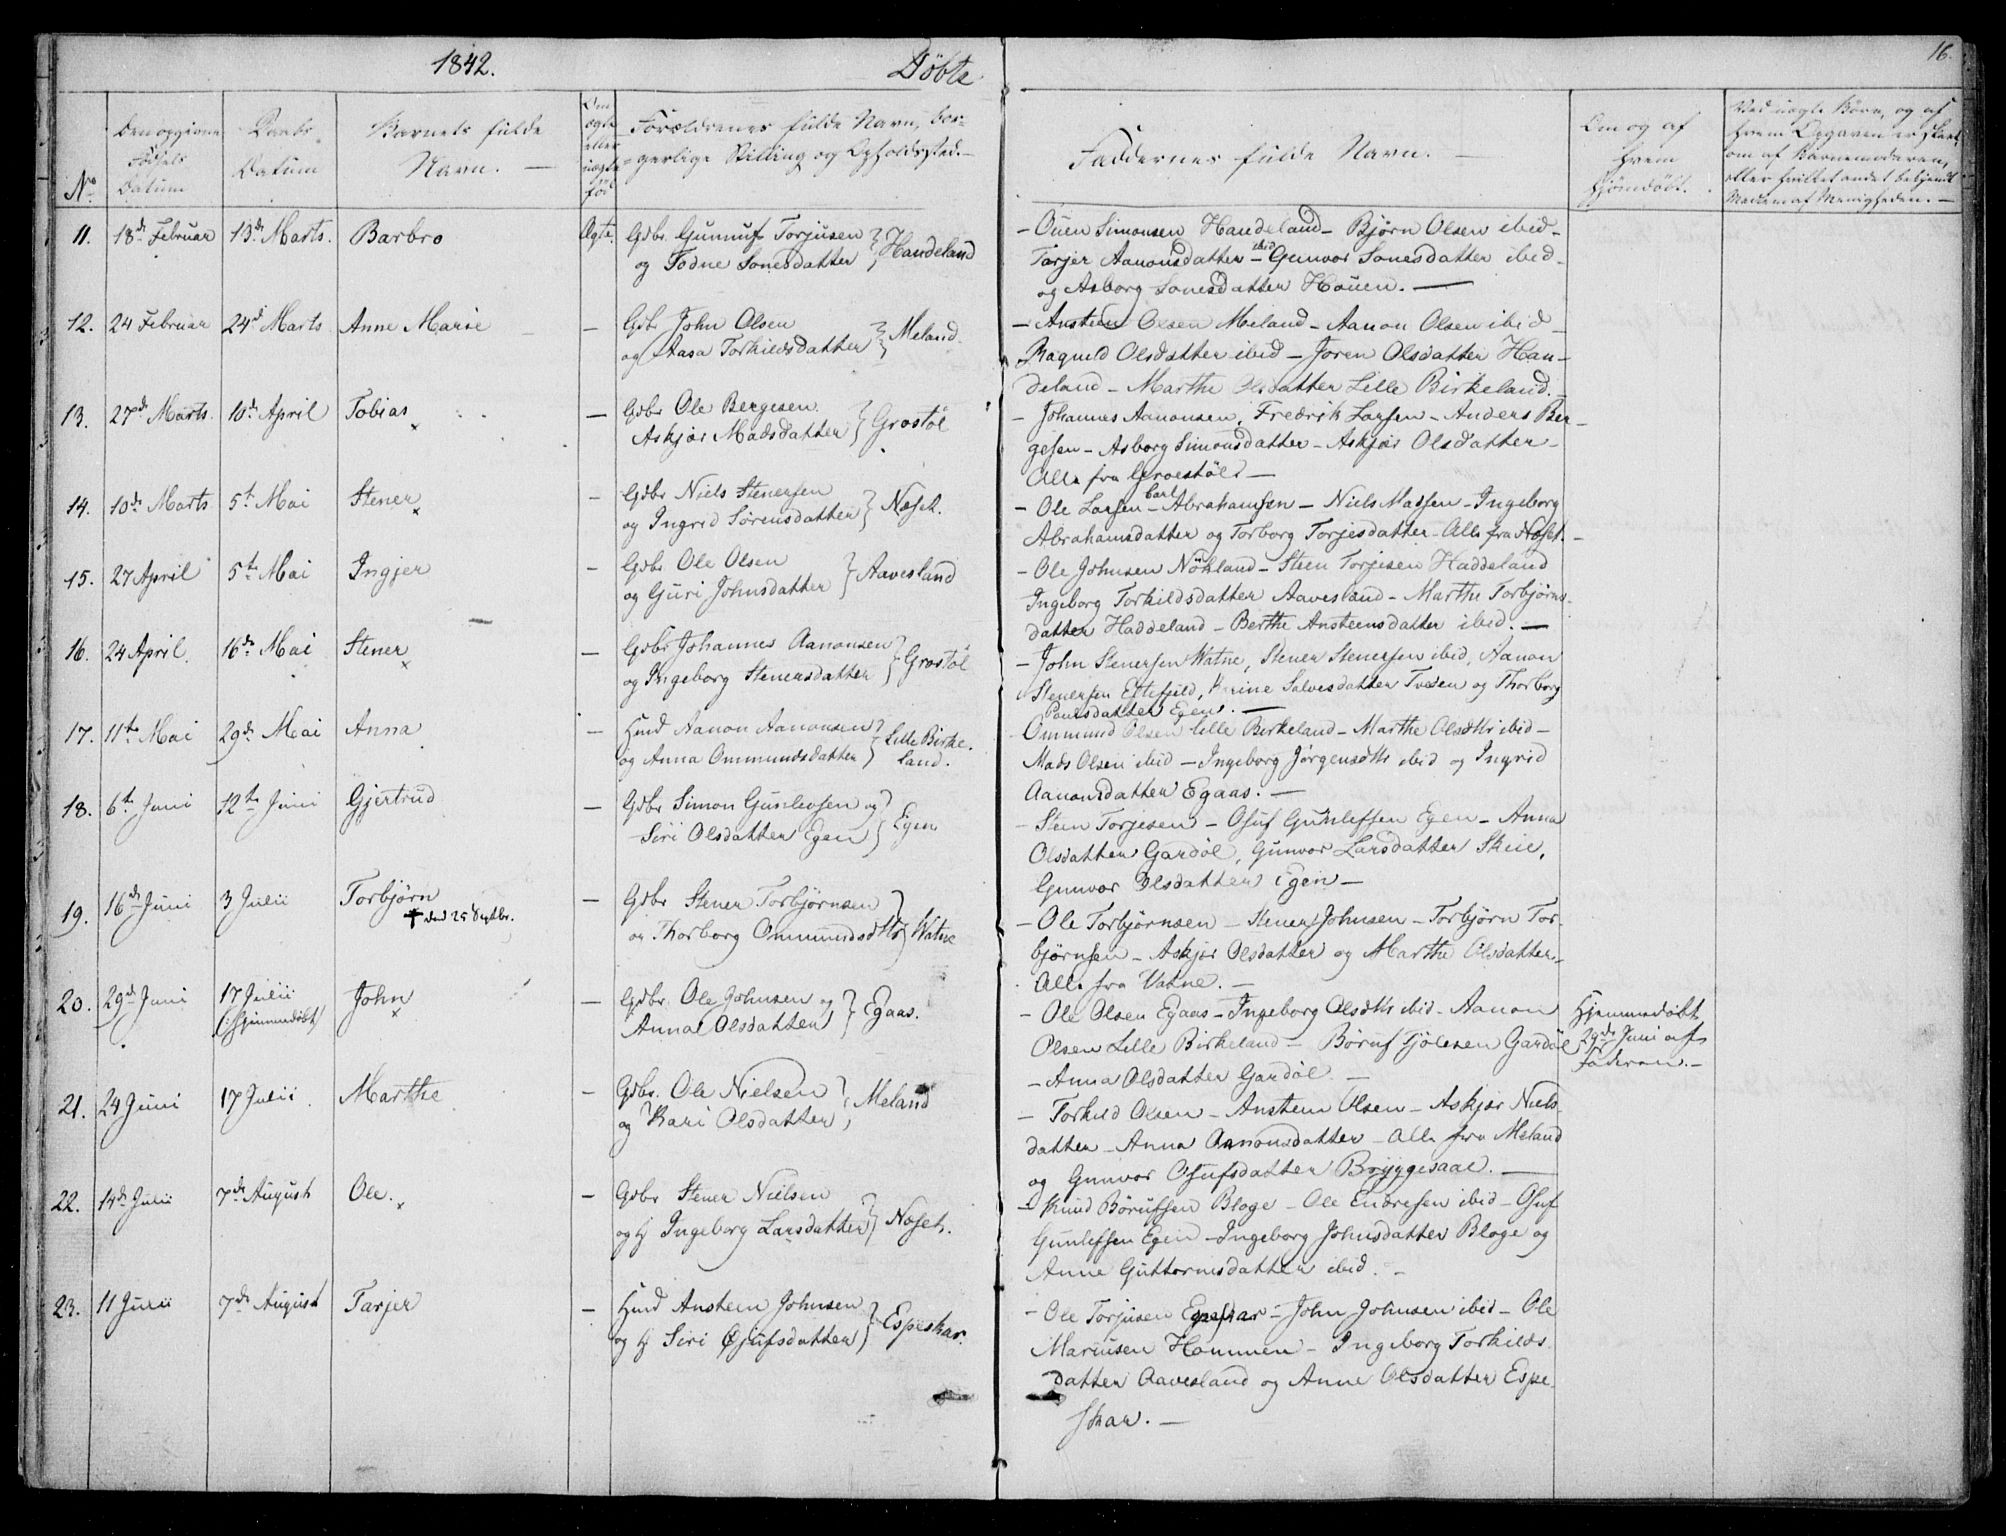 1842.
Döbte
16.
No
Den opgivne Födsels Datum
Daabs Datum
Barnets fulde Navn.
Om ægte eller uægte fød
Forældrenes fulde Navn, bor=
=gerlige Stilling og Opholdssted.
Faddernes fulde Navn.
Om og af hvem hjemdøbt.
Ved uægte Børn, og af hvem Opgaven er skeet, om af Barnemoderen, eller hvilket andet bekjendt Mænd af Menigheden.
11. 18de Februar 13de Marts. Barbro Ægte. Gdbr. Gunnuf Torjusen
og Todne Tonesdatter } Handeland
- Ouen Simonsen Handeland - Bjørn Olsen ibid -
Tarjer Aanonsdatter ibid - Gunvor Sonesdatter ibid -
og Asborg Sonesdatter Höuen. -
12. 24 Februar 24de Marts Anne Marie - Gdbr John Olsen
og Aasa Torkildsdatter } Meland.
- Ansteen Olsen Meland - Aanon Olsen ibid -
Ragnild Olsdatter ibid - Joren Olsdatter Han-
deland - Marthe Olsdatter Lille Birkeland. -
13. 27de Marts. 10de April Tobias x - Gdbr Ole Bergesen
Askjær Madsdatter } Grostöl
- Johannes Aanonsen, Fredrik Larsen - Anders Ber-
gesen - Asborg Simonsdatter - Askjær Olsdatter -
Alle fra Groestöl. -
14. 10de Marts 5te Mai Stener x - Gdbr Niels Stenersen
og Ingrid Sörensdatter } Næset.
- Ole Larsen - Carl Abrahamsen - Niels Madsen - Ingeborg
Abrahamsdatter og Torborg Torjesdatter - Alle fra Næset. -
15. 27 April 5te Mai Ingjer - Gdbr Ole Olsen
og Guri Johnsdatter } Aavesland
- Ole Johnsen Nökland - Steen Torjesen Haddeland
Ingeborg Torkildsdatter Aavesland - Marthe Torbjørns-
datter Haddeland - Berthe Ansteensdatter ibid. -
16. 24 April. 16de Mai Stener x - Gdbr Johannes Aanonsen
og Ingeborg Stenersdatter } Grostöl
- John Stenersen Watne, Stener Stenersen ibid, Aanon
Stenersen Eftefjeld, Karine Salvesdatter Tveden og Thorborg
Poulsdatter Egen. -
17. 11te Mai 29de Mai Anna - Hmd Aanon Aanonsen
og Anna Ommundsdatter } Lille Birke-
land.
Ommund Olsen lille Birkeland - Marthe Olsdttr ibid -
Mads Olsen ibid - Ingeborg Jörgensdttr ibid og Ingrid
Aanonsdatter Egaas. -
18. 6te Juni 12te Juni Gjertrud - Gdbr Simon Gunlevsen og
Siri Olsdatter Egen } Egen
- Steen Torjesen - Osuf Gunlefsen Egen - Anna
Olsdatter Gardöl, Gunvor Larsdatter Skeie,
Gunvor Olsdatter Egen -
19. 16de Juni 3 Julii Torbjørn - Gdbr Stener Torbjørnsen
† død 25 Septbr.
og Thorborg Ommundsdttr } Watne
- Ole Torbjørnsen - Stener Johnsen - Torbjørn Tor-
bjørnsen - Askjær Olsdatter og Marthe Olsdatter -
Alle fra Vatne. -
20. 29de Juni 17 Julii John x - Gdbr. Ole Johnsen og
(:hjemmedöbt)
Anna Olsdatter } Egaas.
- Ole Olsen Egaas - Ingeborg Olsdttr ibid - Aanon
Olsen Lille Birkeland - Böruf Tjölesen Gardöl
- Anna Olsdatter Gardöl -
Hjemmedøbt
29de Juni af
Faderen. -
21. 24 Juni 17 Julii. Marthe - Gdbr. Ole Nielsen
og Kari Olsdatter } Meland
- Torkild Olsen - Ansteen Olsen - Askjær Niels-
datter - Anna Aanonsdatter - Alle fra Meland
og Gunvor Osufsdatter Bryggesaae. -
22. 14de Julii 7de August Ole. x - Gdbr Stener Nielsen
og H Ingeborg Larsdatter } Næset.
- Knud Börufsen Bloge - Ole Endresen ibid - Osuf
Gunlefsen Egen - Ingeborg Johnsdatter Bloge og
Anne Guttormsdatter ibid. -
23. 11 Julii 7de August Tarjer - Hmd Ansteen Johnsen
og H Siri Osufsdatter } Espeskar.
- Ole Torjusen Espeskar - John Johnsen ibid - Ole
Mariusen Hommen - Ingeborg Torkilds-
datter Aavesland og Anne Olsdatter Espe-
skar. -